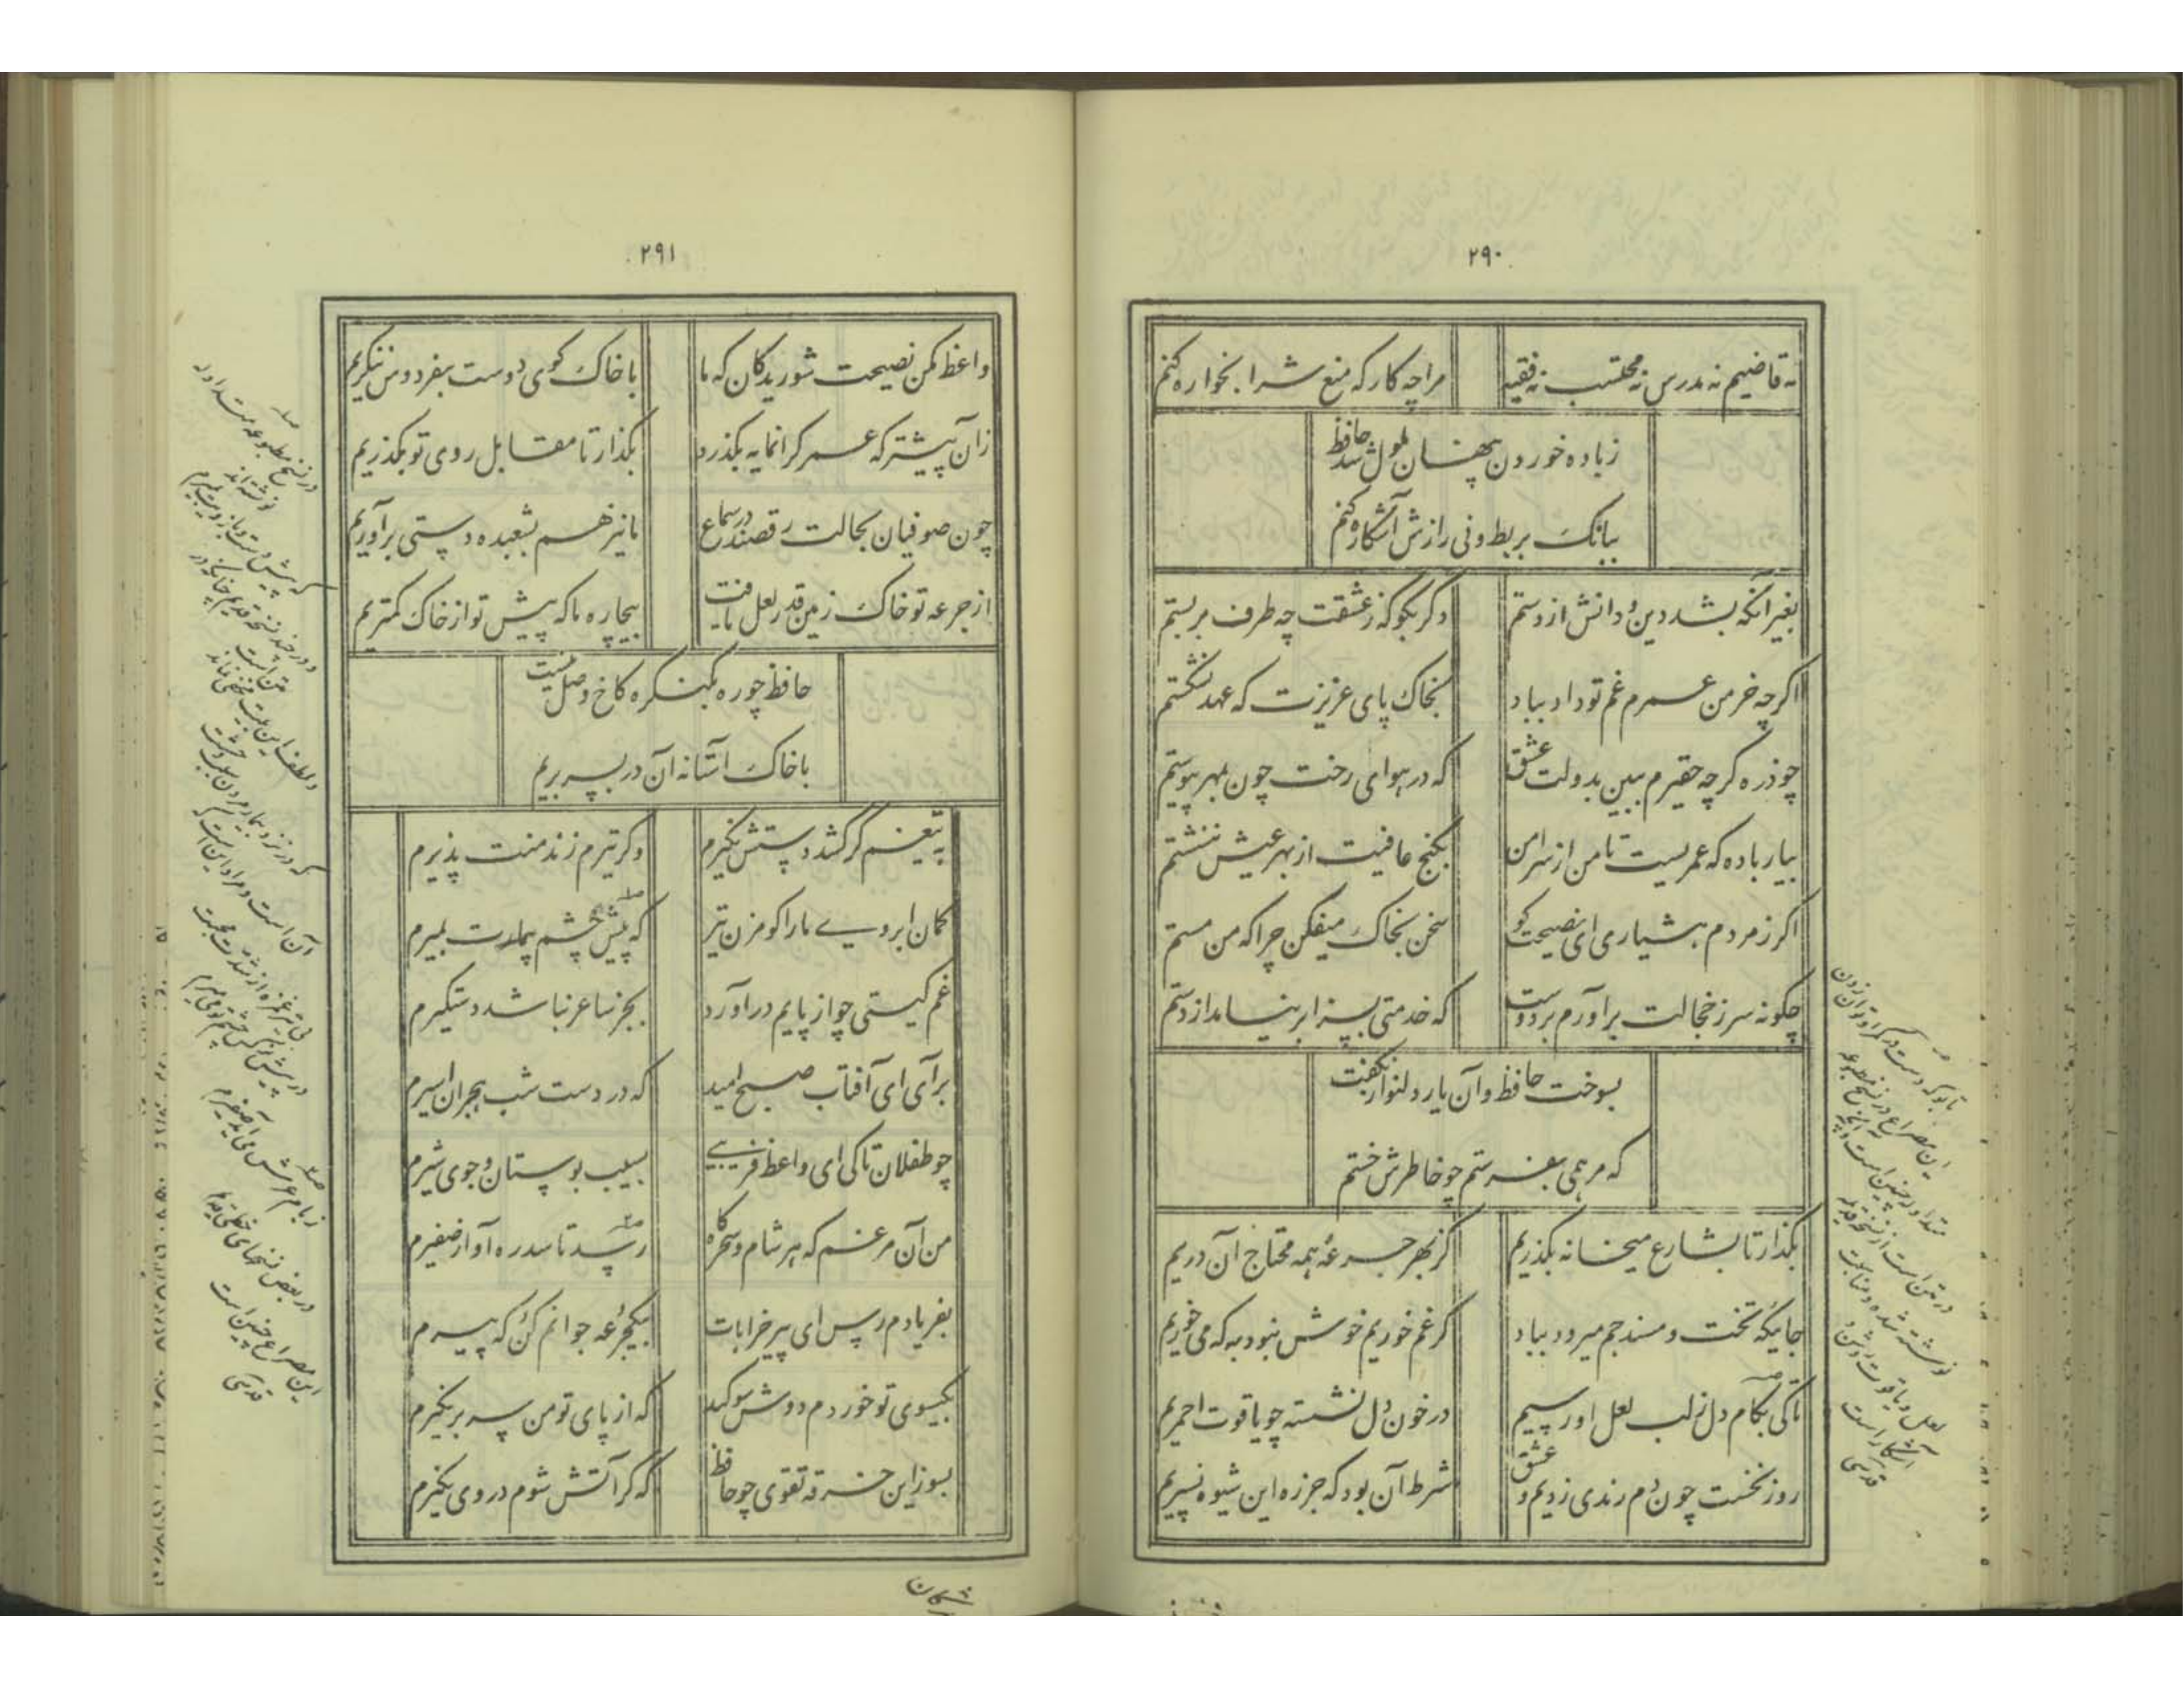 ۲۹۰
نه قاضیم نه مدرس نه محتسب نه فقیه مرا چه کار که منع شرابخواره کنم
ز باده خوردن پنهان ملول شد حافظ
ببانک بربط و نی رازش آشکاره کنم
بغیر آنکه بشد دین و دانش از دستم دکر بکو که ز عشقت چه طرف بربستم
اکرچه خرمن عمرم غم تو داد بباد بخاک پای عزیزت که عهد نشکستم
چو ذره کرچه حقیرم ببین بدولت عشق که در هوای رخت چون بمهر پیوستم
بیار باده که عمریست تا من از سر امن بکنج عافیت از بهر عیش ننشستم
اکر ز مردم هشیاری ای نصیحت کو سخن بخاک میفکن چرا که من مستم
چکونه سر ز خجالت برآورم بر دوست که خدمتی بسزا برنیامد از دستم
بسوخت حافظ و آن یار دلنواز نکفت
که مرهمی بفرستم چو خاطرش خستم
بکذار تا بشارع میخانه بکذریم کز بهر جرعه همه محتاج آن دریم
جائیکه تخت و مسند جم میرود بباد کر غم خوریم خوش نبود به که می خوریم
تا کی بکام دل ز لب لعل او رسیم در خون دل نشسته چو یاقوت احمریم
روز نخست چون دم رندی زدیم و عشق شرط آن بود که جز ره این شیوه نسپریم
این مصراع در نسخ مطبوعه
در متن است از نسخه قدیمه
نوشته شده و مناسبت
لعل و یاقوت و خون
آشکار است
قدسی
۲۹۱
واعظ مکن نصیحت شوریدکان که ما با خاک کوی دوست بفردوس ننکریم
زان پیشتر که عمر کرانمایه بکذرد بکذار تا مقابل روی تو بکذریم
چون صوفیان بحالت رقصند در سماع ما نیز هم بشعبده دستی برآوریم
از جرعه تو خاک زمین قدر لعل یافت بیچاره ما که پیش تو از خاک کمتریم
حافظ چو ره بکنکره کاخ وصل نیست
با خاک آستانه آن در بسر بریم
بتیغم کر کشد دستش نکیرم وکر تیرم زند منت پذیرم
کمان ابروی ما را کو مزن تیر که پیش چشم بیمارت بمیرم
غم کیتی چو از پایم درآورد بجز ساغر نباشد دستکیرم
برآی ای آفتاب صبح امید که در دست شب هجران اسیرم
چو طفلان تا کی ای واعظ فریبی بسیب بوستان و جوی شیرم
من آن مرغم که هر شام و سحرکاه رسد تا سدره آواز صفیرم
بفریادم رس ای پیر خرابات بیکجرعه جوانم کن که پیرم
بکیسوی تو خوردم دوش سوکند که از پای تو من سر برنکیرم
بسوز این خرقه تقوی چو حافظ که کر آتش شوم در وی نکیرم
در نسخ مطبوعه متداوله
نوشته‌اند
ز بام عرش می‌آید صفیرم
در بعض نسخهای خطی
این مصراع چنین است
قدسی